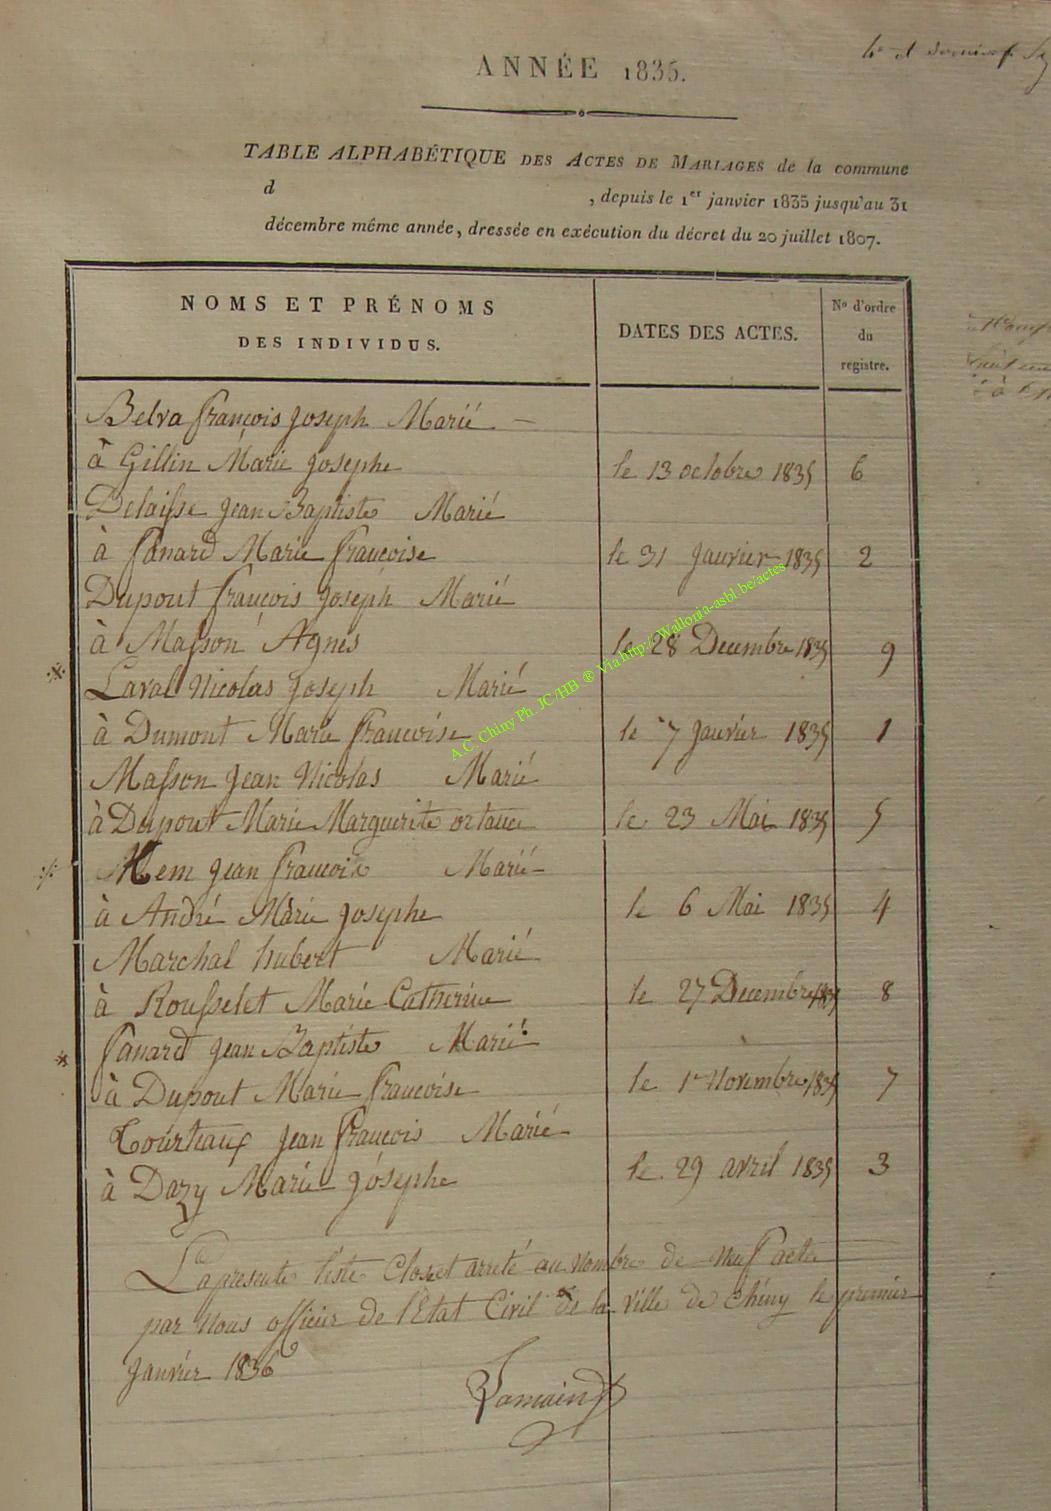 ANNÉE 1835.
TABLE ALPHABÉTIQUE DES ACTES DE MARIAGES de la commune
d , depuis le 1er janvier 1835 jusqu'au 31
décembre même année, dressée en exécution du décret du 20 juillet 1807.
NOMS ET PRÉNOMS DES INDIVIDUS. DATES DES ACTES. No d'ordre du registre.
Belva françois Joseph Marié
à Gillin Marie Josephe le 13 octobre 1835 6
Delaisse Jean Baptiste Marié
à fanard Marie françoise le 31 Janvier 1835 2
Dupont françois Joseph Marié
à Masson Agnes le 28 Decembre 1835 9
Laval Nicolas Joseph Marié
à Dumont Marie francoise le 7 Janvier 1835 1
Masson Jean Nicolas Marié
à Dupont Marie Marguerite ortance le 23 Mai 1835 5
Mem Jean francois Marié
à André Marie Josephe le 6 Mai 1835 4
Marchal hubert Marié
à Rousselet Marie Catherine le 27 Decembre 1835 8
fanard Jean Baptiste Marié
à Dupont Marie francoise le 1r Novembre 1835 7
Tourteaux Jean françois Marié
à Dazy Marie Josephe le 29 avril 1835 3
La presente liste Close et arreté au nombre de neuf actes
par nous officier de l'Etat Civil de la Ville de Chiny le premier
Janvier 1836
A.C. Chiny Ph. JC/HB ® Via http://Wallonia-asbl.be/actes